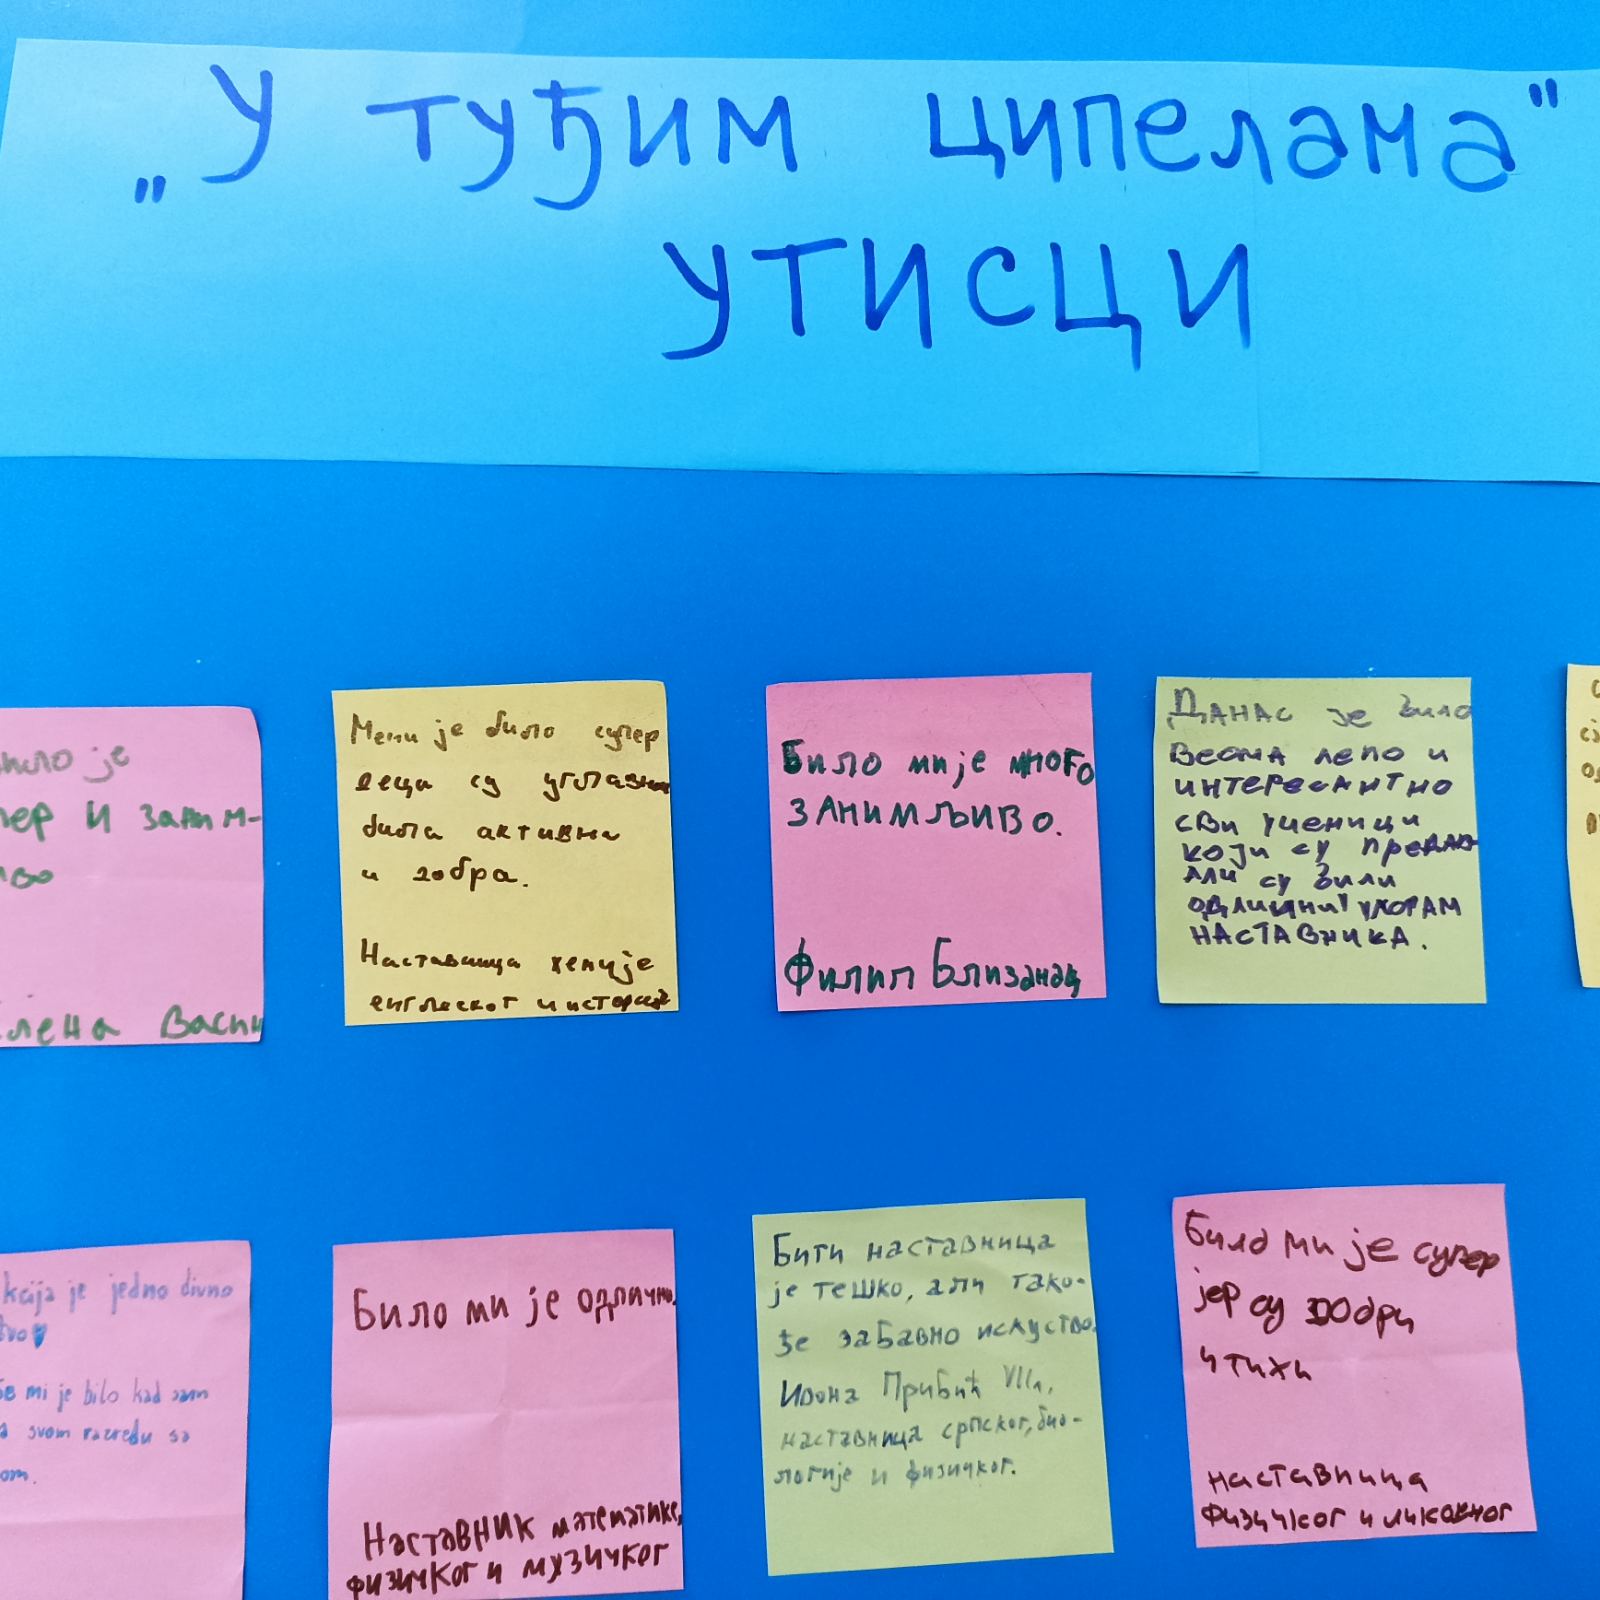 „У туђим ципелама"
УТИСЦИ
било је
пер и заним-
иво
лена Васи
Мени је било супер
деца су углавном
била активна
и добра.
Наставица хемије
енглеског и историје
Било ми је много
занимљиво.
Филип Близанац
ДАНАС је било
веома лепо и
интересантно
сви ученици
који су предав
али су били
одлични! УМОРАМ
НАСТАВНИКА.
kcija je jedno divno
tvo
mi je bilo kad sam
svom razredu sa
om.
Било ми је одлично.
Наставник математике,
физичког и музичког
Бити наставница
је тешко, али тако-
ђе забавно искуство.
Ивона Прибић VIIIл,
наставница српског, био-
логије и физичког.
било ми је супер
јер су добри
и тихи
наставница
физичког и ликовног